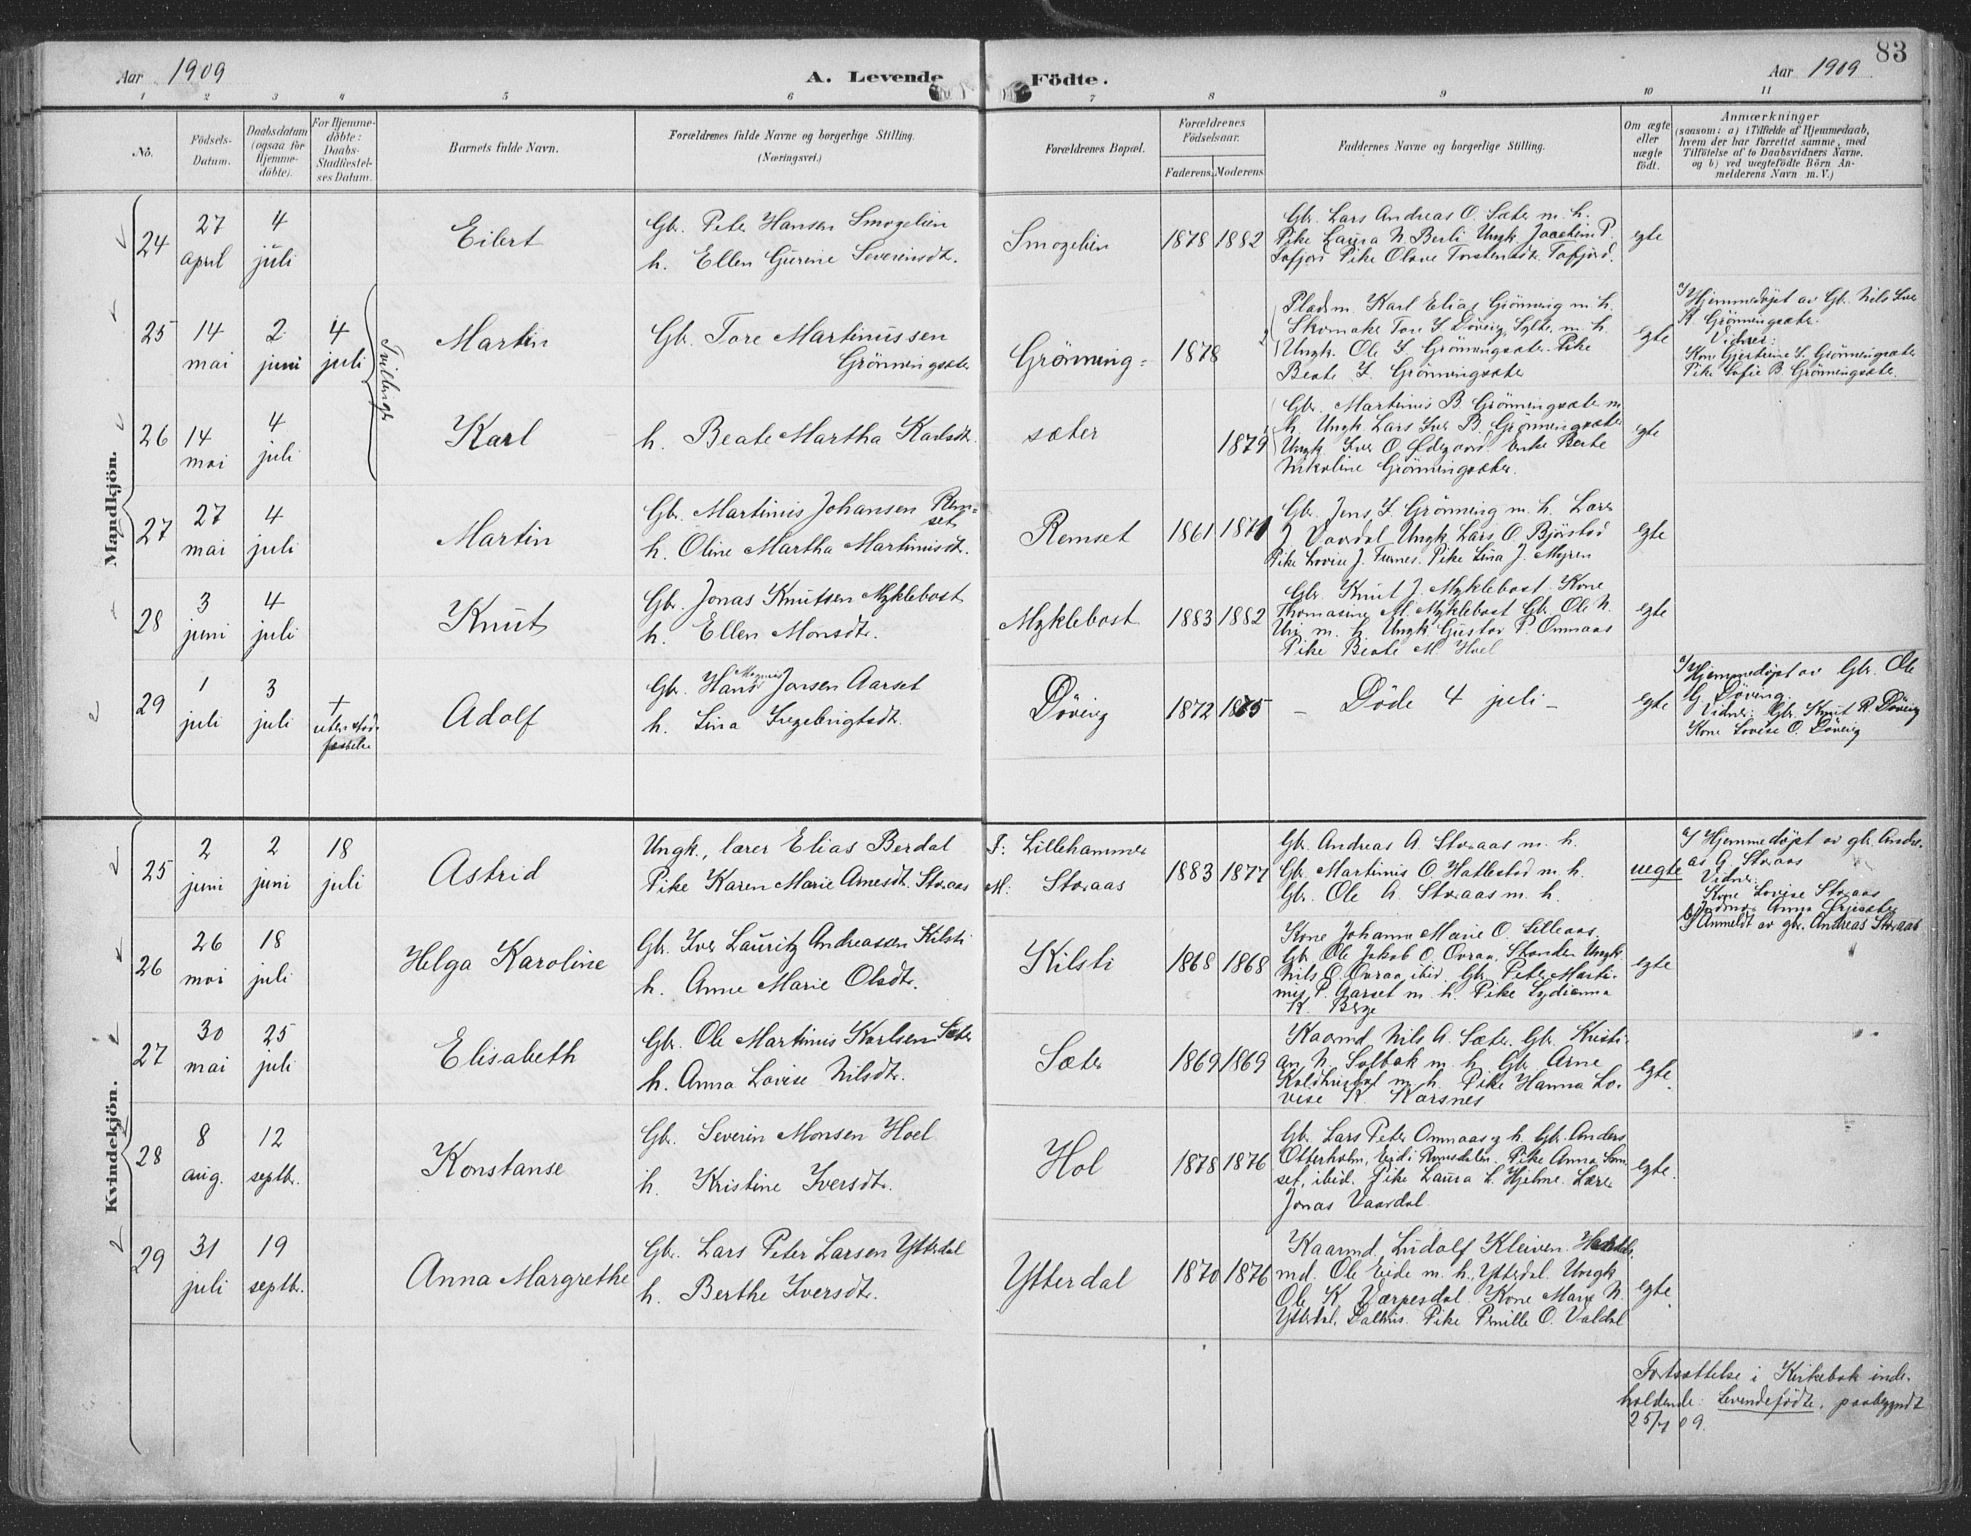 83
Aar 1909
A. Levende Födte.
Aar 1909
1 2 3 4 5 6 7 8 9 10 11
No.
Födsels-
Datum.
Daabsdatum
(ogsaa for
Hjemme-
döbte).
For Hjemme-
döbte:
Daabs-
Stadfæstel-
ses Datum.
Barnets fulde Navn.
Forældrenes fulde Navne og borgerlige Stilling.
(Næringsvei.)
Forældrenes Bopæl.
Forældrenes
Födselsaar.
Faderens. Moderens.
Faddernes Navne og borgerlige Stilling.
Om ægte
eller
uægte
födt.
Anmærkninger
(saasom: a) i Tilfælde af Hjemmedaab,
hvem der har forrettet samme, med
Tilföielse af to Daabsvidners Navne.
og b) ved uægtefödte Börn An-
melderens Navn m. V.)
Mandkjön.
24
27
april
4
juli
Eilert
Gbr. Peter Hansen Smogelien
h. Ellen Gurine Severinsdt.
Smogelien
1878 1882
Gbr. Lars Andreas O. Sæter m. h.
Pike Laura N. Berli Ungk. Joachim P.
Tafjord Pike Olave Torstensdt. Tafjord.
egte
25
14
mai
2
juni
4
juli
Tvillinger
Martin
Gbr. Tore Martinussen
Grönningsæter
Grönning=
1878
Pladsm. Karl Elias Grönning m. h.
Skomaker Tore S. Döving, Sylte m. h.
Ungk. Ole I. Grönningsæter. Pike
Beate I. Grönningsæter
egte
a/ Hjemmedöpt av Gbr. Nils Iver
K. Grönningsæter.
Vidner:
Kone Gjertrine S. Grönningsæter
Pike Sofie B. Grönningsæter.
26
14
mai
4
juli
Karl
h. Beate Martha Karlsdt.
sæter
1879
Gbr. Martinus B. Grönningsæter m
h. Ungk. Lars Iver B. Grönningsæter
Ungk. Iver O. Ödegaard. Enke Berte
Nikoline Grönningsæter.
egte
27
27
mai
4
juli
Martin
Gbr. Martinus Johansen Rem-
set
h. Oline Martha Martinusdt.
Remset
1861 1871
Gbr. Jens I. Grönning m. h. Lærer
J. Vaardal Ungk. Lars O. Bjørstad
Pike Lovise J. Furnes. Pike Lina J. Myren
egte
28
3
juni
4
juli
Knut
Gbr. Jonas Knutsen Myklebost
h. Ellen Monsdt.
Myklebost
1883 1882
Gbr. Knut J. Myklebost. Kone
Thomasine M. Myklebost Gbr. Ole N.
Uri m. h. Ungk. Gustav P. Ommaas
Pike Beate M. Hoel
egte
29
1
juli
3
juli
+
uten stad-
festelse
Adolf
Gbr. Hans Magnus Jonsen Aarset
h. Lina Ingebrigtsdt.
Döving
1872 1875
– Döde 4 juli –
egte
a/ Hjemmedøpt av Gbr. Ole
G. Döving.
Vidner: Gbr. Knut R. Döving
Kone Lovise O. Döving
Kvindekjön.
25
2
juni
2
juni
18
juli
Astrid
Ungk., lærer Elias Berdal
Pike Karen Marie Arnesdt. Storaas
F: Lillehammer
M: Storaas
1883 1877
Gbr. Andreas A. Storaas m. h.
Gbr. Martinus O. Hattestad m. h.
Gbr. Ole A. Storaas m. h.
uegte
a/ Hjemmedöpt av gbr. Andre-
as A. Storaas
Vidner:
Kone Lovise Storaas
Jordmor Anna
b/ Anmeldt av gbr. Andreas Storaas
26
26
mai
18
juli
Helga Karoline
Gbr. Iver Lauritz Andreassen Kilsti
h. Anne Marie Olsdt.
Kilsti
1868 1868
Kone Johanne Marie O. Lilleaas.
Gbr. Ole Jakob O. Ovraa, Stranden Ungk.
Nils O. Ovraa, ibid. Gbr. Peter Marti-
nus P. Aarset m. h. Pike Lydianna
K. Berge
egte
27
30
mai
25
juli
Elisabeth
Gbr. Ole Martinus Karlsen Sæter
h. Anna Lovise Nilsdt.
Sæter
1869 1869
Kaarmd. Nils A. Sæter. Gbr. Kristi-
an N. Solbak m. h. Gbr. Arne
Koldhustad m. h. Pike Hanna Lo-
vise K. Korsnes
egte.
28
8
aug.
12
septbr.
Konstanse
Gbr. Severin Monsen Hoel
h. Kristine Iversdt.
Hol
1878 1876
Gbr. Lars Peter Ommaas og h. Gbr. Anders
Otterholm, Eid i Romsdalen. Pike Anna Som
set, ibid. Pike Laura L. Hjelme. Lærer
Jonas Vaardal.
egte.
29
31
juli
19
septbr.
Anna Margrethe
Gbr. Lars Peter Larsen Ytterdal
h. Berthe Iversdt.
Ytterdal
1870 1876
Kaarmd. Ludolf Kleiven. Handels-
md. Ole Eide m. h., Ytterdal. Ungk.
Ole K. Værpesdal. Kone Marie N.
Ytterdal, Dalhus. Pike Pernille O. Valdal
egte.
Fortsættelse i Kirkebok inde-
holdende: Levendefödte, paabegyndt
25/7 09.